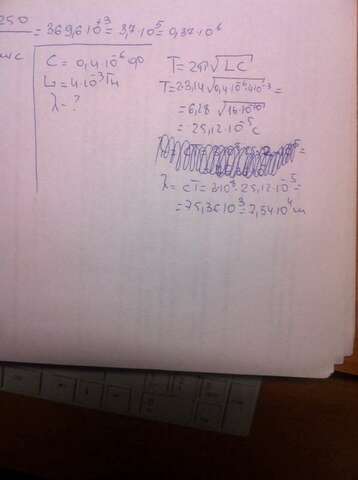 250 = 369,6·10⁺³ = 3,7·10⁵ = 0,37·10⁶
C = 0,4·10⁻⁶ Ф
L = 4·10⁻³ Гн
λ - ?
T = 2π√LC
T = 2·3,14√0,4·10⁻⁶·4·10⁻³ =
= 6,28 √16·10⁻¹⁰ =
= 25,12·10⁻⁵ с
λ = cT = 3·10⁸·25,12·10⁻⁵ =
= 75,36·10³ = 7,54·10⁴ м